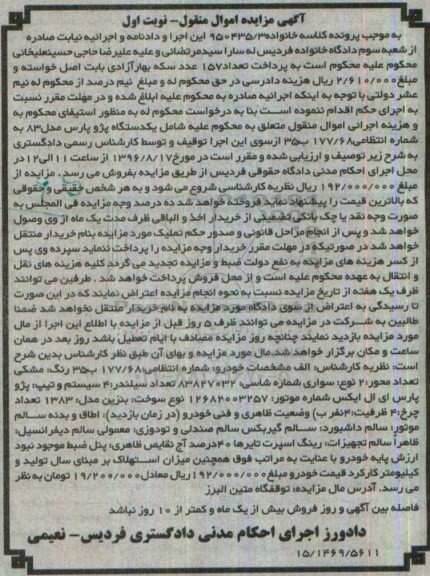 آگهی مزایده اموال منقول- نوبت اول
به موجب پرونده کلاسه خانواده ۹۵۰۴۳۵/۳ این اجرا و دادنامه و اجرائیه نیابت صادره
از شعبه سوم دادگاه خانواده فردیس له سارا سیدمرتضائی و علیه علیرضا حاجی حسینعلیخانی
محکوم علیه محکوم است به پرداخت تعداد۱۵۷ عدد سکه بهارآزادی بابت اصل خواسته و
مبلغ ۲/۶۱۰/۰۰۰ ریال هزینه دادرسی در حق محکوم له و مبلغ نیم درصد از محکوم له نیم
عشر دولتی با توجه به اینکه اجرائیه صادره به محکوم علیه ابلاغ شده و در مهلت مقرر نسبت
به اجرای حکم اقدام ننموده است بنا به درخواست محکوم له به منظور استیفای محکوم به
و هزینه اجرائی اموال منقول متعلق به محکوم علیه شامل یکدستگاه پژو پارس مدل۸۳ به
شماره انتظامی۱۷۷/۶۸ ب۳۵ ازسوی این اجرا توقیف و توسط کارشناس رسمی دادگستری
به شرح زیر توصیف و ارزیابی شده و مقرر است در مورخ۱۳۹۶/۸/۱۷ از ساعت۱۱ الی۱۲در
محل اجرای احکام مدنی دادگاه حقوقی فردیس از طریق مزایده بفروش می رسد. مزایده از
مبلغ ۱۹۲/۰۰۰/۰۰۰ ریال نظریه کارشناسی شروع می شود و به هر شخص حقیقی و حقوقی
که بالاترین قیمت را پیشنهاد نماید فروخته خواهد شد ده درصد وجه مزایده فی المجلس به
صورت وجه نقد یا چک بانکی تضمینی از خریدار اخذ و الباقی ظرف مدت یک ماه از وی وصول
خواهد شد و پس از انجام مراحل قانونی و صدور حکم تملیک مورد مزایده بنام خریدار منتقل
خواهد شد در صورتیکه در مهلت مقرر خریدار وجه مزایده را پرداخت ننماید سپرده وی پس
از کسر هزینه های مزایده به نفع دولت ضبط و مزایده تجدید می گردد کلیه هزینه های نقل
و انتقال به عهده محکوم علیه است و از محل فروش پرداخت خواهد شد . طرفین می توانند
ظرف یک هفته از تاریخ مزایده نسبت به نحوه انجام مزایده اعتراض نمایند که در این صورت
تا رسیدگی به اعتراض از سوی دادگاه مورد مزایده به نام خریدار منتقل نخواهد شد ضمنا
طالبین به شرکت در مزایده می توانند ظرف ۵ روز قبل از مزایده با اطلاع این اجرا از مال
مورد مزایده بازدید نمایند چنانچه روز مزایده مصادف با ایام تعطیل باشد روز بعد در همان
ساعت و مکان برگزار خواهد شد.مال مورد مزایده و بهای آن طبق نظر کارشناس بدین شرح
است: نظریه کارشناس: الف مشخصات خودرو: شماره انتظامی:۱۷۷/۶۸ ب۳۵ رنگ: مشکی
تعداد محور:۲ نوع: سواری شماره شاسی: ۸۳۸۲۷۰۳۲ تعداد سیلندر:۴ سیستم و تیپ: پژو
پارس ای ال ایکس شماره موتور: ۱۲۶۸۳۰۰۳۲۵۷ نوع سوخت: بنزین مدل: ۱۳۸۳ تعداد
چرخ:۴ ظرفیت:۴نفر ب) وضعیت ظاهری و فنی خودرو (در زمان بازدید): اطاق و بدنه سالم
موتور: سالم داشبورد: سالم گیربکس سالم صندلی و تودوزی: معمولی سالم دیفرانسیل:
ظاهراً سالم تجهیزات: رینگ اسپرت تایرها ۴۰درصد آج نقایص ظاهری: پنل ضبط موجود نبود
ارزش پایه خودرو با عنایت به مراتب فوق همچنین میزان استهلاک بر مبنای سال تولید و
کیلیومتر کارکرد قیمت خودرو مبلغ۱۹۲/۰۰۰/۰۰۰ریال معادل۱۹/۲۰۰/۰۰۰ تومان به نظر
می رسد. آدرس مال مزایده: توقفگاه متین البرز
فاصله بین آگهی و روز فروش بیش از یک ماه و کمتر از ۱۰ روز نباشد
دادورز اجرای احکام مدنی دادگستری فردیس- نعیمی
۱۵/۱۴۶۹/۵۶۱۱